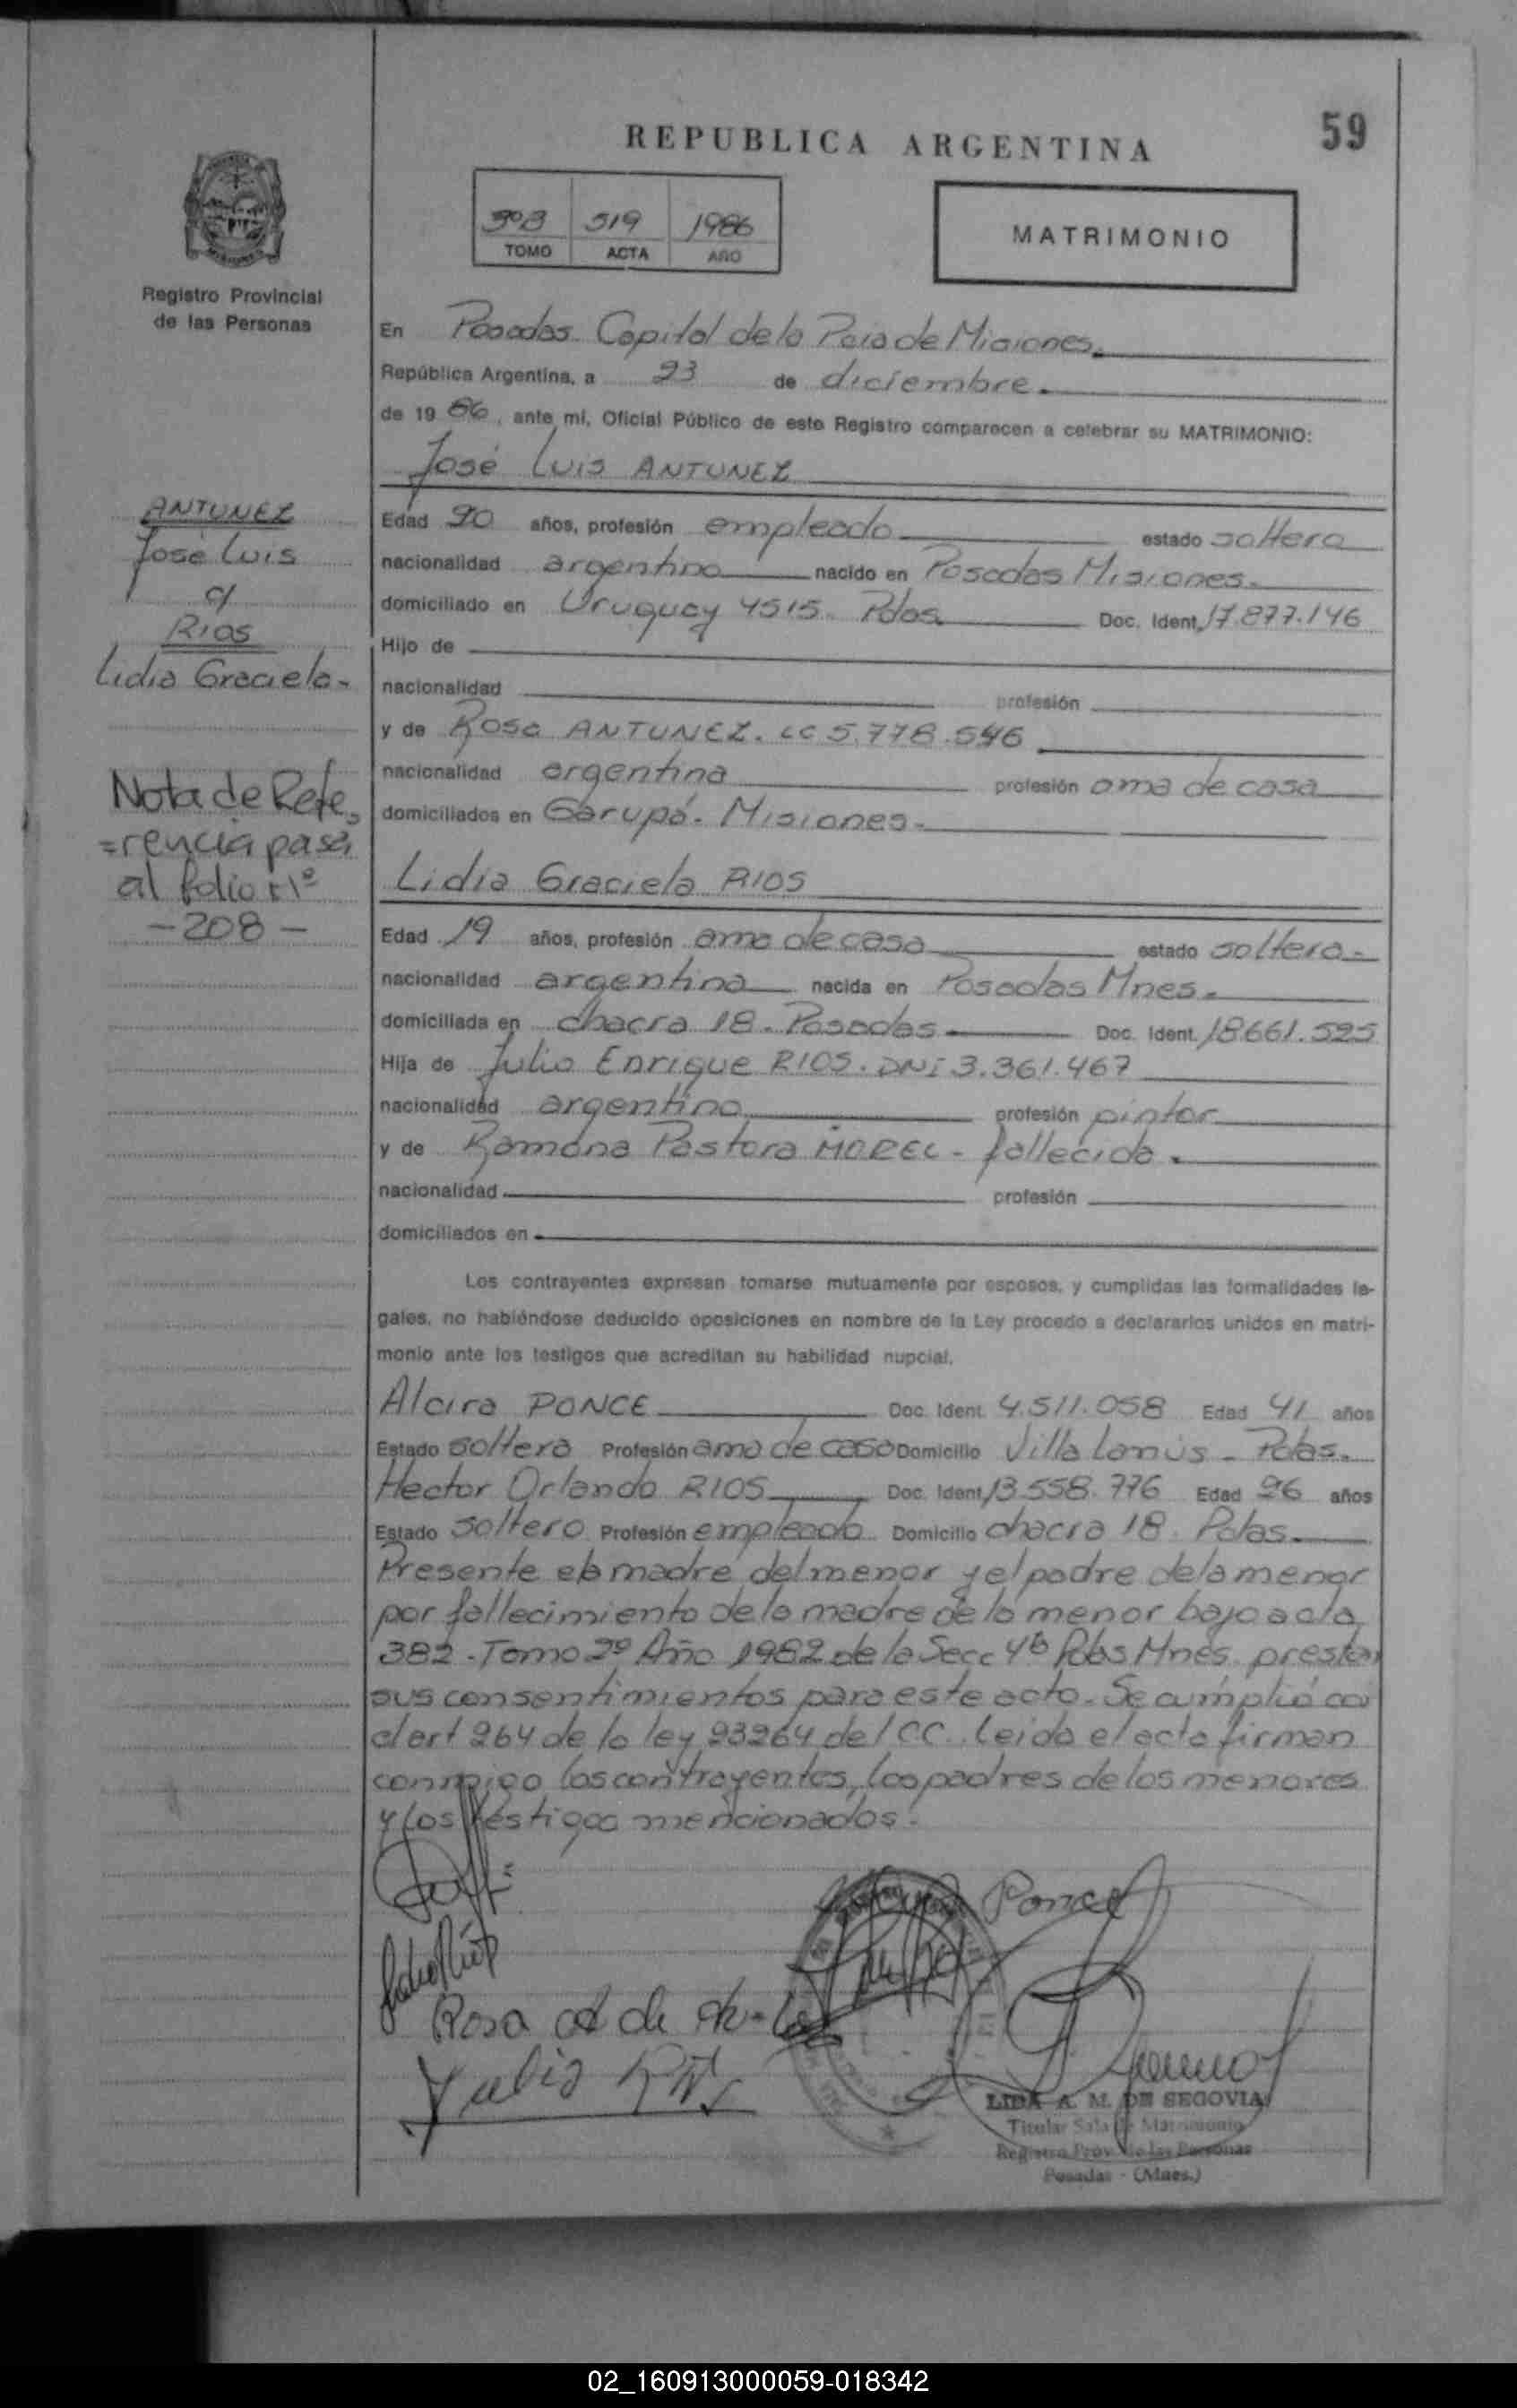 REPUBLICA ARGENTINA
59
TOMO ACTA AÑO
519 1986
MATRIMONIO
Registro Provincial
de las Personas
En Posadas Capital de la Pcia de Misiones.
República Argentina, a 23 de diciembre.
de 19 86, ante mí, Oficial Público de este Registro comparecen a celebrar su MATRIMONIO:
José Luis ANTUNEZ
Edad 20 años, profesión empleado estado soltero
nacionalidad argentino nacido en Posadas Misiones.
domiciliado en Uruguay 4515. Pdas. Doc. Ident. 17.877.146
Hijo de
nacionalidad profesión
y de Rosa ANTUNEZ. LC 5.778.546
nacionalidad argentina profesión ama de casa
domiciliados en Garupá. Misiones.
Lidia Graciela RIOS
Edad 19 años, profesión ama de casa estado soltera.
nacionalidad argentina nacida en Posadas Mnes.
domiciliada en chacra 18. Posadas Doc. Ident. 18661.525
Hija de Julio Enrique RIOS. DNI 3.361.467
nacionalidad argentino profesión pintor
y de Ramona Pastora MOREL - fallecida.
nacionalidad profesión
domiciliados en
Los contrayentes expresan tomarse mutuamente por esposos, y cumplidas las formalidades le-
gales, no habiéndose deducido oposiciones en nombre de la Ley procedo a declararlos unidos en matri-
monio ante los testigos que acreditan su habilidad nupcial.
Alcira PONCE Doc. Ident. 4.511.058 Edad 41 años
Estado soltera Profesión ama de casa Domicilio Villa Lanús - Pdas.
Hector Orlando RIOS Doc. Ident. 13.558.776 Edad 26 años
Estado soltero Profesión empleado Domicilio chacra 18. Pdas.
Presente la madre del menor y el padre de la menor
por fallecimiento de la madre de la menor bajo acta
382. Tomo 2º Año 1982 de la Secc 4ª Pdas Mnes. prestan
sus consentimientos para este acto. Se cumplió con
el art 264 de la ley 23264 del CC. Leida el acta firman
conmigo los contrayentes, los padres de los menores
y los testigos mencionados.
ANTUNEZ
José Luis
c/
RIOS
Lidia Graciela-
Nota de Refe
=rencia pasa
al folio Nº
-208-
Ponce
Rosa A de
LIDA A. M. DE SEGOVIA
Titular Sala de Matrimonio
Registro Prov. de las Personas
Posadas - (Mnes.)
02_160913000059-018342